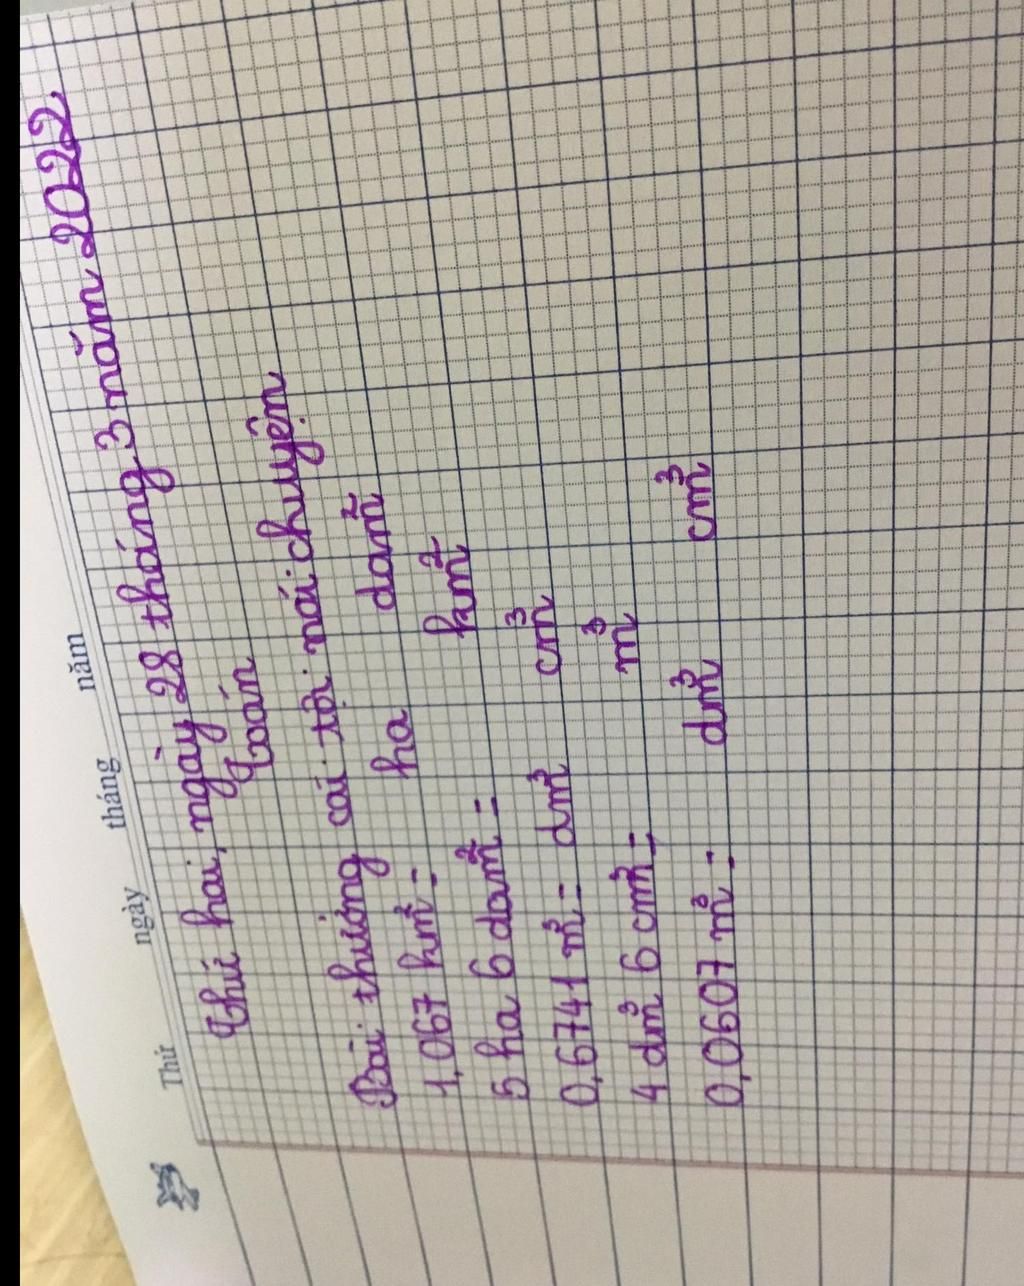 Thứ ngày tháng năm
Thứ hai, ngày 28 tháng 3 năm 2022
Toán
Bài thưởng cái tội nói chuyện
1,067 km² = ha dam²
5 ha 6 dam² = km²
0,6741 m³ = dm³ cm³
4 dm³ 6 cm³ = m³
0,0607 m³ = dm³ cm³